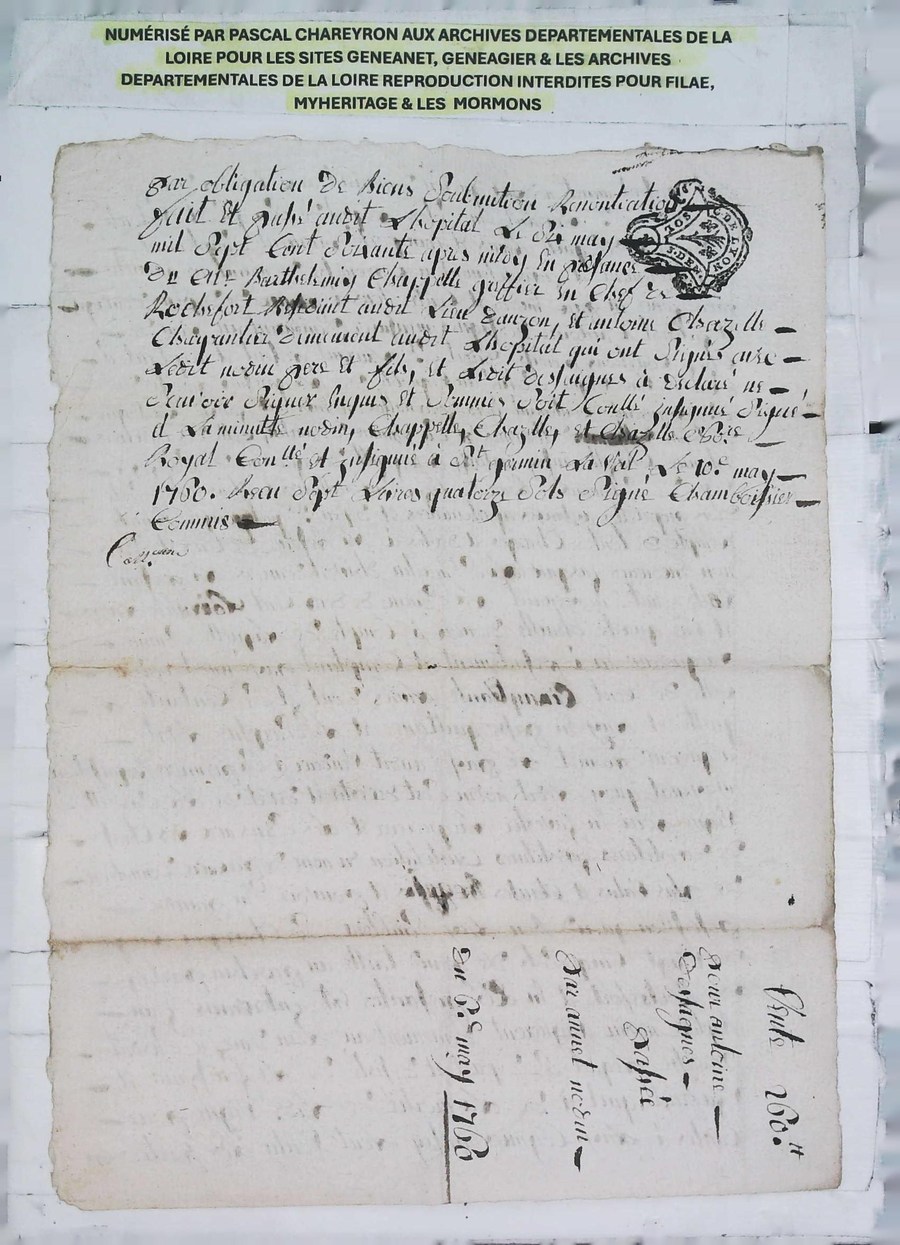 NUMÉRISÉ PAR PASCAL CHAREYRON AUX ARCHIVES DEPARTEMENTALES DE LA
LOIRE POUR LES SITES GENEANET, GENEAGIER & LES ARCHIVES
DEPARTEMENTALES DE LA LOIRE REPRODUCTION INTERDITES POUR FILAE,
MYHERITAGE & LES MORMONS
par obligation de Biens Soubmition Renontiation
fait et passé audit Lhôpital Le 6e may
mil Sept Cent Soixante apres midy En presance
De Me Barthelemy Chappelle greffier En Chef de
Rochefort Residant audit Lieu dauzon, et antoine Chazelle
Charpantier demeurant audit Lhopital qui ont Signés avec
Ledit nodin pere et fils, et Ledit desfaignes à declaré ne
Scavoir Signer Enquis et Sommés Soit Conllé insignué Signé
à La minutte nodin, Chappelle, Chazelle, et Chazelle nore
Royal Conllé et insignué à St germin La Val Le 10e may
1760. Recu Sept Livres quatorze Sols Signé Chamboissier
Commis
Vente 260.tt
Pour antoine
Desfaignes
Passée
Par annet nodin
Du 6.e may 1760